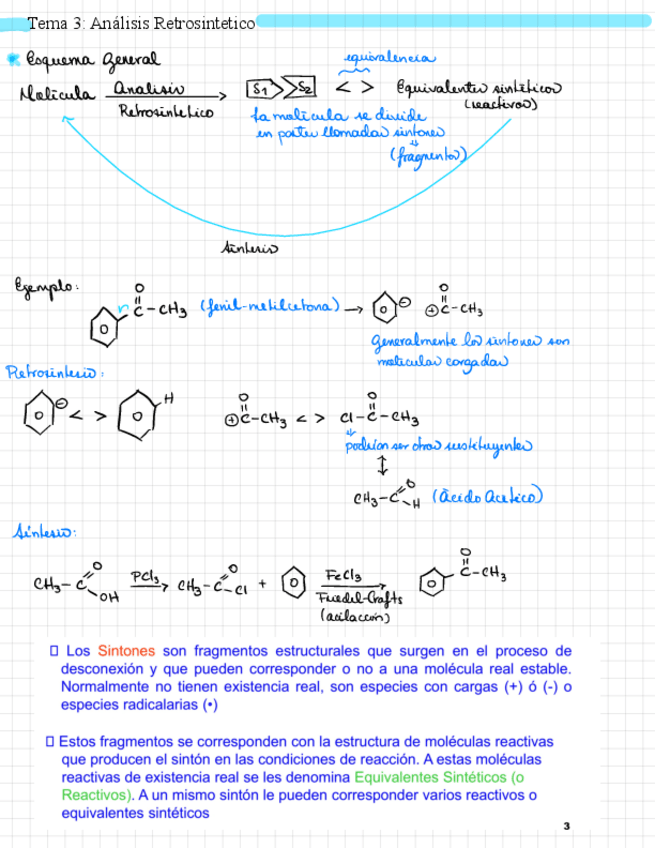 Tema 3: Análisis Retrosintetico
Esquema General
equivalencia
Molécula Analisis Retrosintetico S1 S2 < > Equivalentes sintéticos
(reactivos)
La molécula se divide
en partes llamadas sintones
(fragmentos)
Síntesis
Ejemplo:
O
C-CH3 (fenil-metilcetona) → ⊖ O ⊕C-CH3
Generalmente los sintones son
moleculas cargadas
Retrosíntesis:
⊖ < > H O ⊕C-CH3 < > Cl-C-CH3 O
podrían ser otros sustituyentes
↕
CH3-C O H (Ácido Acético)
Síntesis:
CH3-C O OH PCl3 CH3-C O Cl + FeCl3 C-CH3 O
Friedel-Crafts
(acilación)
Los Sintones son fragmentos estructurales que surgen en el proceso de
desconexión y que pueden corresponder o no a una molécula real estable.
Normalmente no tienen existencia real, son especies con cargas (+) ó (-) o
especies radicalarias (•)
Estos fragmentos se corresponden con la estructura de moléculas reactivas
que producen el sintón en las condiciones de reacción. A estas moléculas
reactivas de existencia real se les denomina Equivalentes Sintéticos (o
Reactivos). A un mismo sintón le pueden corresponder varios reactivos o
equivalentes sintéticos
3